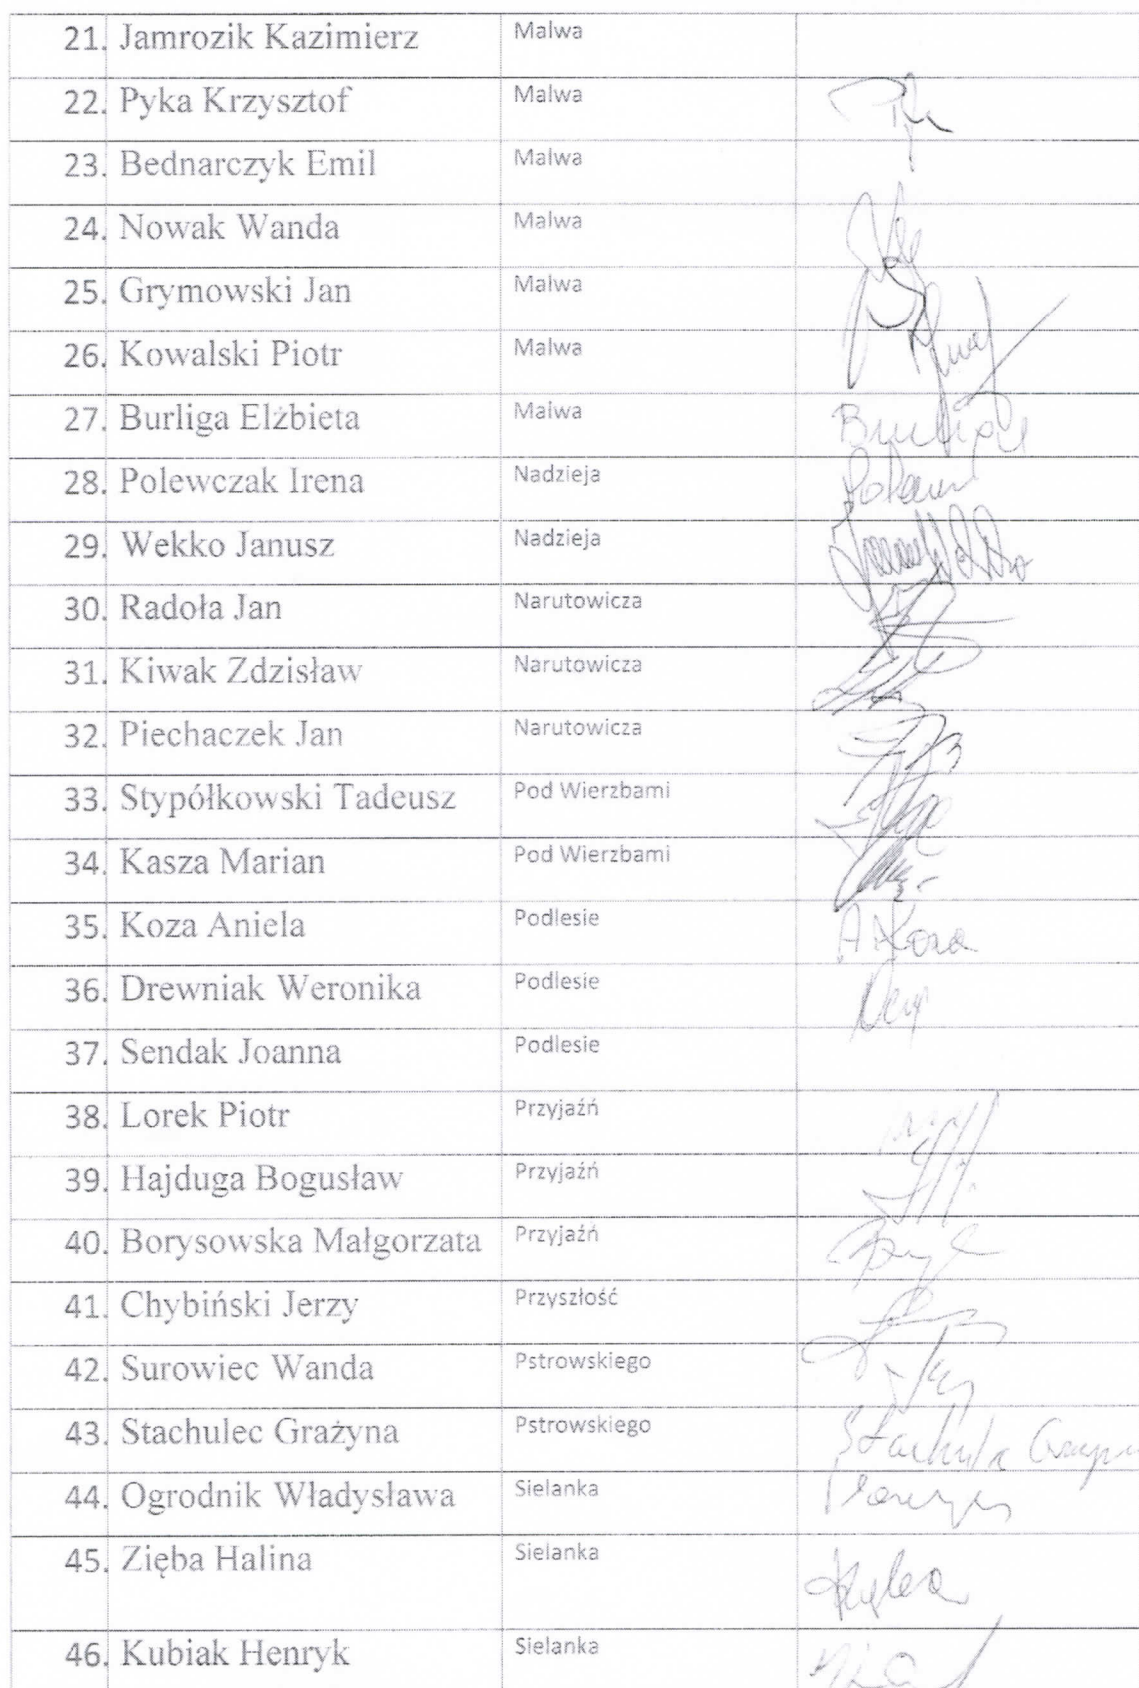 21. Jamrozik Kazimierz Malwa
22. Pyka Krzysztof Malwa
23. Bednarczyk Emil Malwa
24. Nowak Wanda Malwa
25. Grymowski Jan Malwa
26. Kowalski Piotr Malwa
27. Burliga Elżbieta Malwa
28. Polewczak Irena Nadzieja
29. Wekko Janusz Nadzieja
30. Radoła Jan Narutowicza
31. Kiwak Zdzisław Narutowicza
32. Piechaczek Jan Narutowicza
33. Stypółkowski Tadeusz Pod Wierzbami
34. Kasza Marian Pod Wierzbami
35. Koza Aniela Podlesie
36. Drewniak Weronika Podlesie
37. Sendak Joanna Podlesie
38. Lorek Piotr Przyjaźń
39. Hajduga Bogusław Przyjaźń
40. Borysowska Małgorzata Przyjaźń
41. Chybiński Jerzy Przyszłość
42. Surowiec Wanda Pstrowskiego
43. Stachulec Grażyna Pstrowskiego
44. Ogrodnik Władysława Sielanka
45. Zięba Halina Sielanka
46. Kubiak Henryk Sielanka